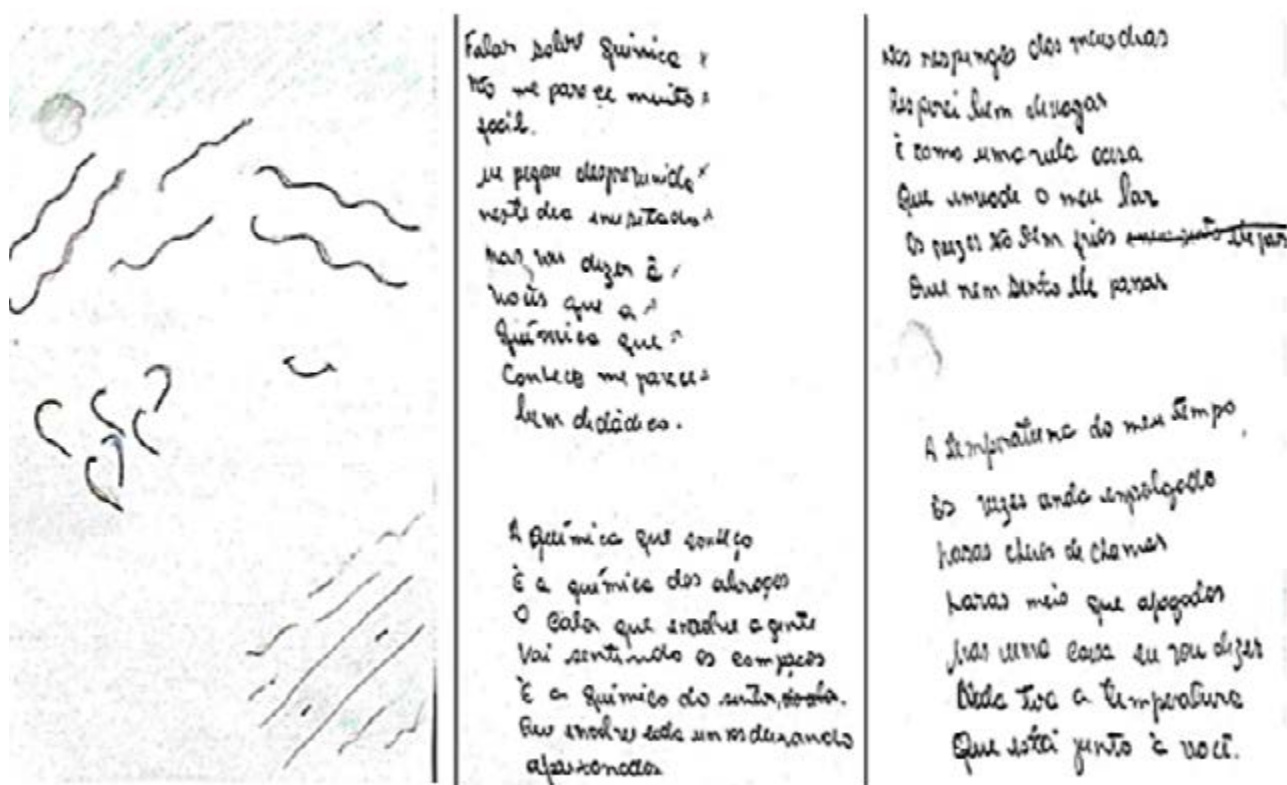 Falar sobre química
Não me parece muito
facil.
me pegou desprevinido
neste dia inusitado
mas vou dizer à
vocês que a
Química que
Conheço me parece
bem didádica.
A química que conheço
È a química dos abraços
O Calor que envolve a gente
Vai sentindo os compaços
È a química do
Que envolve cada um nos deixando
apaixonados
Nos respingos dos meus dias
Resperei bem devagar
È como uma vela acesa
Que invade o meu lar
às vezes tão bem frios
Que nem sento ele passar
A temperatura do meu tempo
às vezes anda empolgado
horas cheio de chamas
horas meio que afogados
Mas uma coisa eu vou dizer
Nada tira a temperatura
Que estai junto à você.